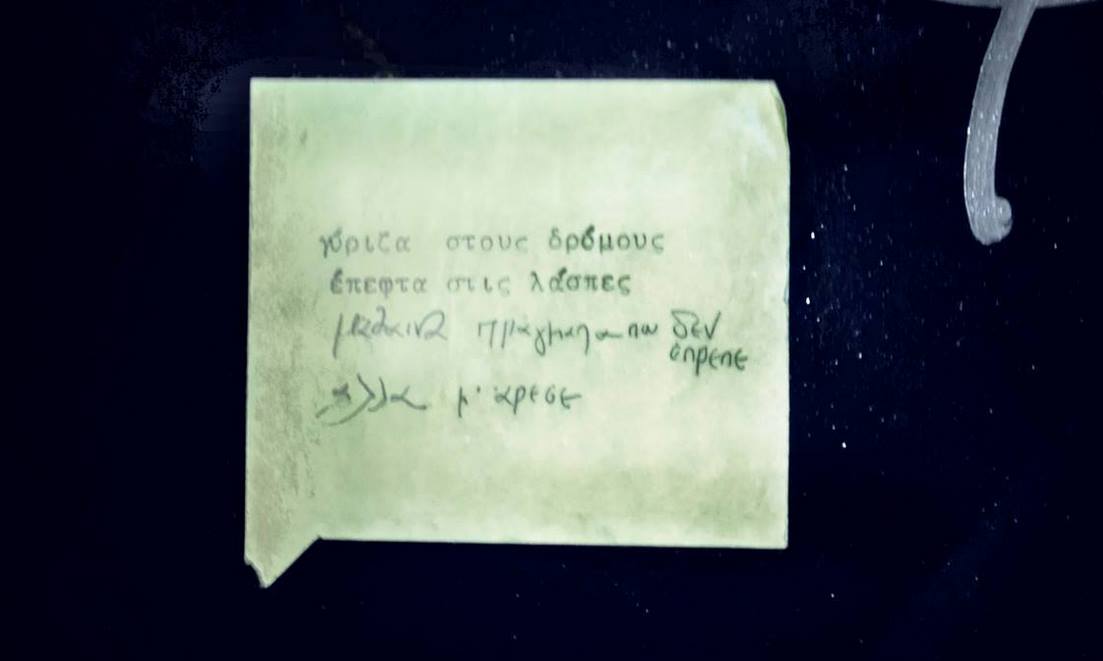 γύριζα στους δρόμους
έπεφτα στις λάσπες
μαθαινα πραγματα που δεν
επρεπε
αλλα μ' αρεσε